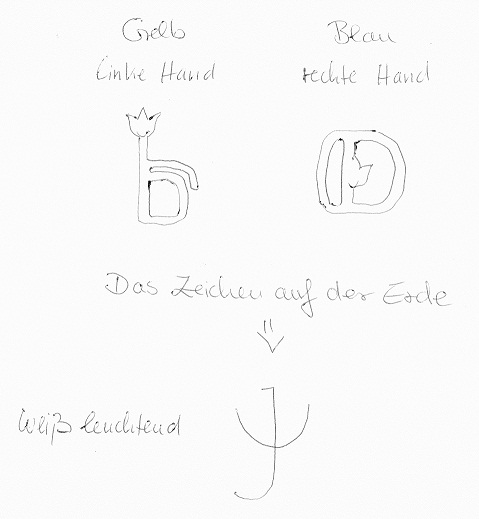 Gelb
Blau
linke Hand
rechte Hand
Das Zeichen auf der Erde
Weiß leuchtend